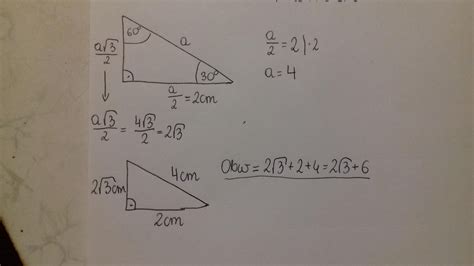 60°
a√3/2
a
30°
a/2 = 2cm
a/2 = 2 |·2
a = 4
a√3/2 = 4√3/2 = 2√3
2√3cm
4cm
2cm
Obw = 2√3+2+4 = 2√3+6